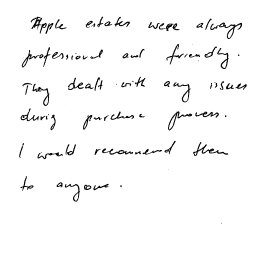 Apple estates were always
professional and friendly.
They dealt with any issues
during purchase process.
I would recommend them
to anyone.